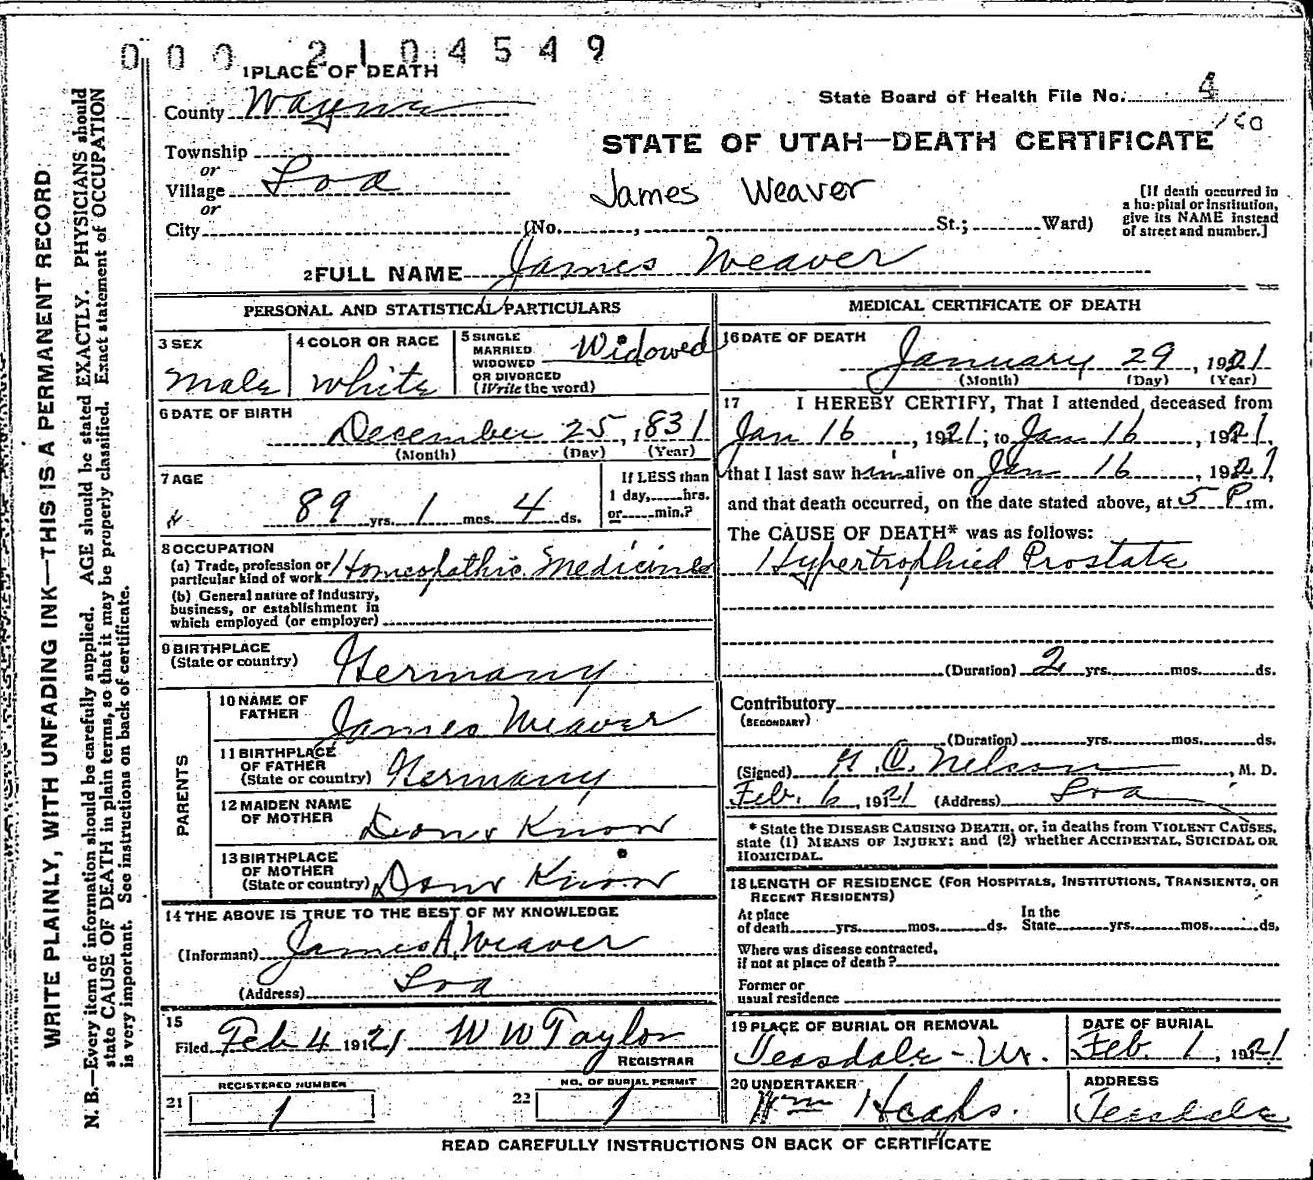 0 0 0 2 1 0 4 5 4 9
WRITE PLAINLY, WITH UNFADING INK—THIS IS A PERMANENT RECORD
N. B.—Every item of information should be carefully supplied. AGE should be stated EXACTLY. PHYSICIANS should
state CAUSE OF DEATH in plain terms, so that it may be properly classified. Exact statement of OCCUPATION
is very important. See instructions on back of certificate.
1 PLACE OF DEATH
County Wayne
State Board of Health File No. 4
160
Township
or
Village Loa
or
City (No. , St.; Ward)
STATE OF UTAH—DEATH CERTIFICATE
James Weaver
[If death occurred in
a hospital or institution,
give its NAME instead
of street and number.]
2 FULL NAME James Weaver
PERSONAL AND STATISTICAL PARTICULARS
3 SEX
Male
4 COLOR OR RACE
White
5 SINGLE
MARRIED
WIDOWED
OR DIVORCED
(Write the word)
Widowed
6 DATE OF BIRTH
December 25, 1831
(Month) (Day) (Year)
7 AGE
89 yrs. 1 mos. 4 ds.
If LESS than
1 day, hrs.
or min.?
8 OCCUPATION
(a) Trade, profession or
particular kind of work Homeopathic Medicines
(b) General nature of Industry,
business, or establishment in
which employed (or employer)
9 BIRTHPLACE
(State or country) Germany
PARENTS
10 NAME OF
FATHER James Weaver
11 BIRTHPLACE
OF FATHER
(State or country) Germany
12 MAIDEN NAME
OF MOTHER Dont Know
13 BIRTHPLACE
OF MOTHER
(State or country) Dont Know
14 THE ABOVE IS TRUE TO THE BEST OF MY KNOWLEDGE
(Informant) James A Weaver
(Address) Loa
15
Filed Feb 4 1921 W W Taylor
REGISTRAR
21 REGISTERED NUMBER
1
22 NO. OF BURIAL PERMIT
1
MEDICAL CERTIFICATE OF DEATH
16 DATE OF DEATH
January 29, 1921
(Month) (Day) (Year)
17 I HEREBY CERTIFY, That I attended deceased from
Jan 16, 1921, to Jan 16, 1921,
that I last saw him alive on Jan 16, 1921,
and that death occurred, on the date stated above, at 5 P.m.
The CAUSE OF DEATH* was as follows:
Hypertrophied Prostate
(Duration) 2 yrs. mos. ds.
Contributory
(SECONDARY)
(Duration) yrs. mos. ds.
(Signed) G. O. Nelson, M. D.
Feb. 6, 1921 (Address) Loa
* State the DISEASE CAUSING DEATH, or, in deaths from VIOLENT CAUSES,
state (1) MEANS OF INJURY; and (2) whether ACCIDENTAL, SUICIDAL OR
HOMICIDAL.
18 LENGTH OF RESIDENCE (FOR HOSPITALS, INSTITUTIONS, TRANSIENTS, OR
RECENT RESIDENTS)
At place
of death yrs. mos. ds.
In the
State yrs. mos. ds.
Where was disease contracted,
if not at place of death?
Former or
usual residence
19 PLACE OF BURIAL OR REMOVAL
Teasdale - Ut.
DATE OF BURIAL
Feb. 1, 1921
20 UNDERTAKER
Wm Heaps.
ADDRESS
Teasdale
READ CAREFULLY INSTRUCTIONS ON BACK OF CERTIFICATE